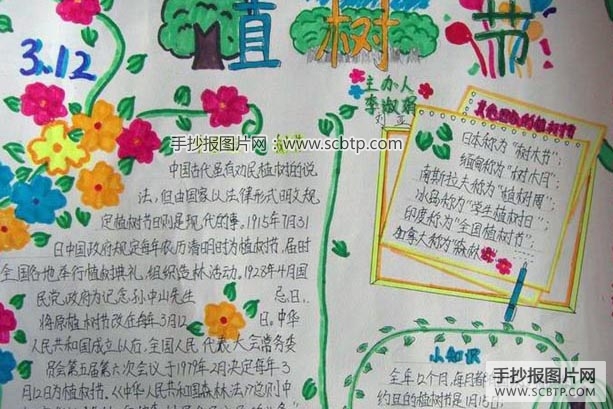 3.12
植树节
主办人
李淑娟
手抄报图片网 www.scbtp.com
中国古代虽有劝民植树的说
法,但由国家以法律形式明文规
定植树节日则是现代的事。1915年7月31
日中国政府规定每年农历清明时为植树节.届时
全国各地举行植树典礼.组织造林活动.1928年4月国
民党政府为记念孙中山先生 忌日,
将原植树节改在每年3月12 日。中华
人民共和国成立以后,全国人民代表大会常务委
员会第五届第六次会议于1979年2月决定每年3
月12日为植树节.《中华人民共和国森林法》总则中
的植树节
日本称为"树木节";
缅甸称为"树木月";
南斯拉夫称为"植树周";
冰岛称为"学生植树日";
印度称为"全国植树节";
加拿大称为"森林
小知识
全年12个月,每月都
约旦的植树节是1月15日
手抄报图片网
WWW.SCBTP.COM